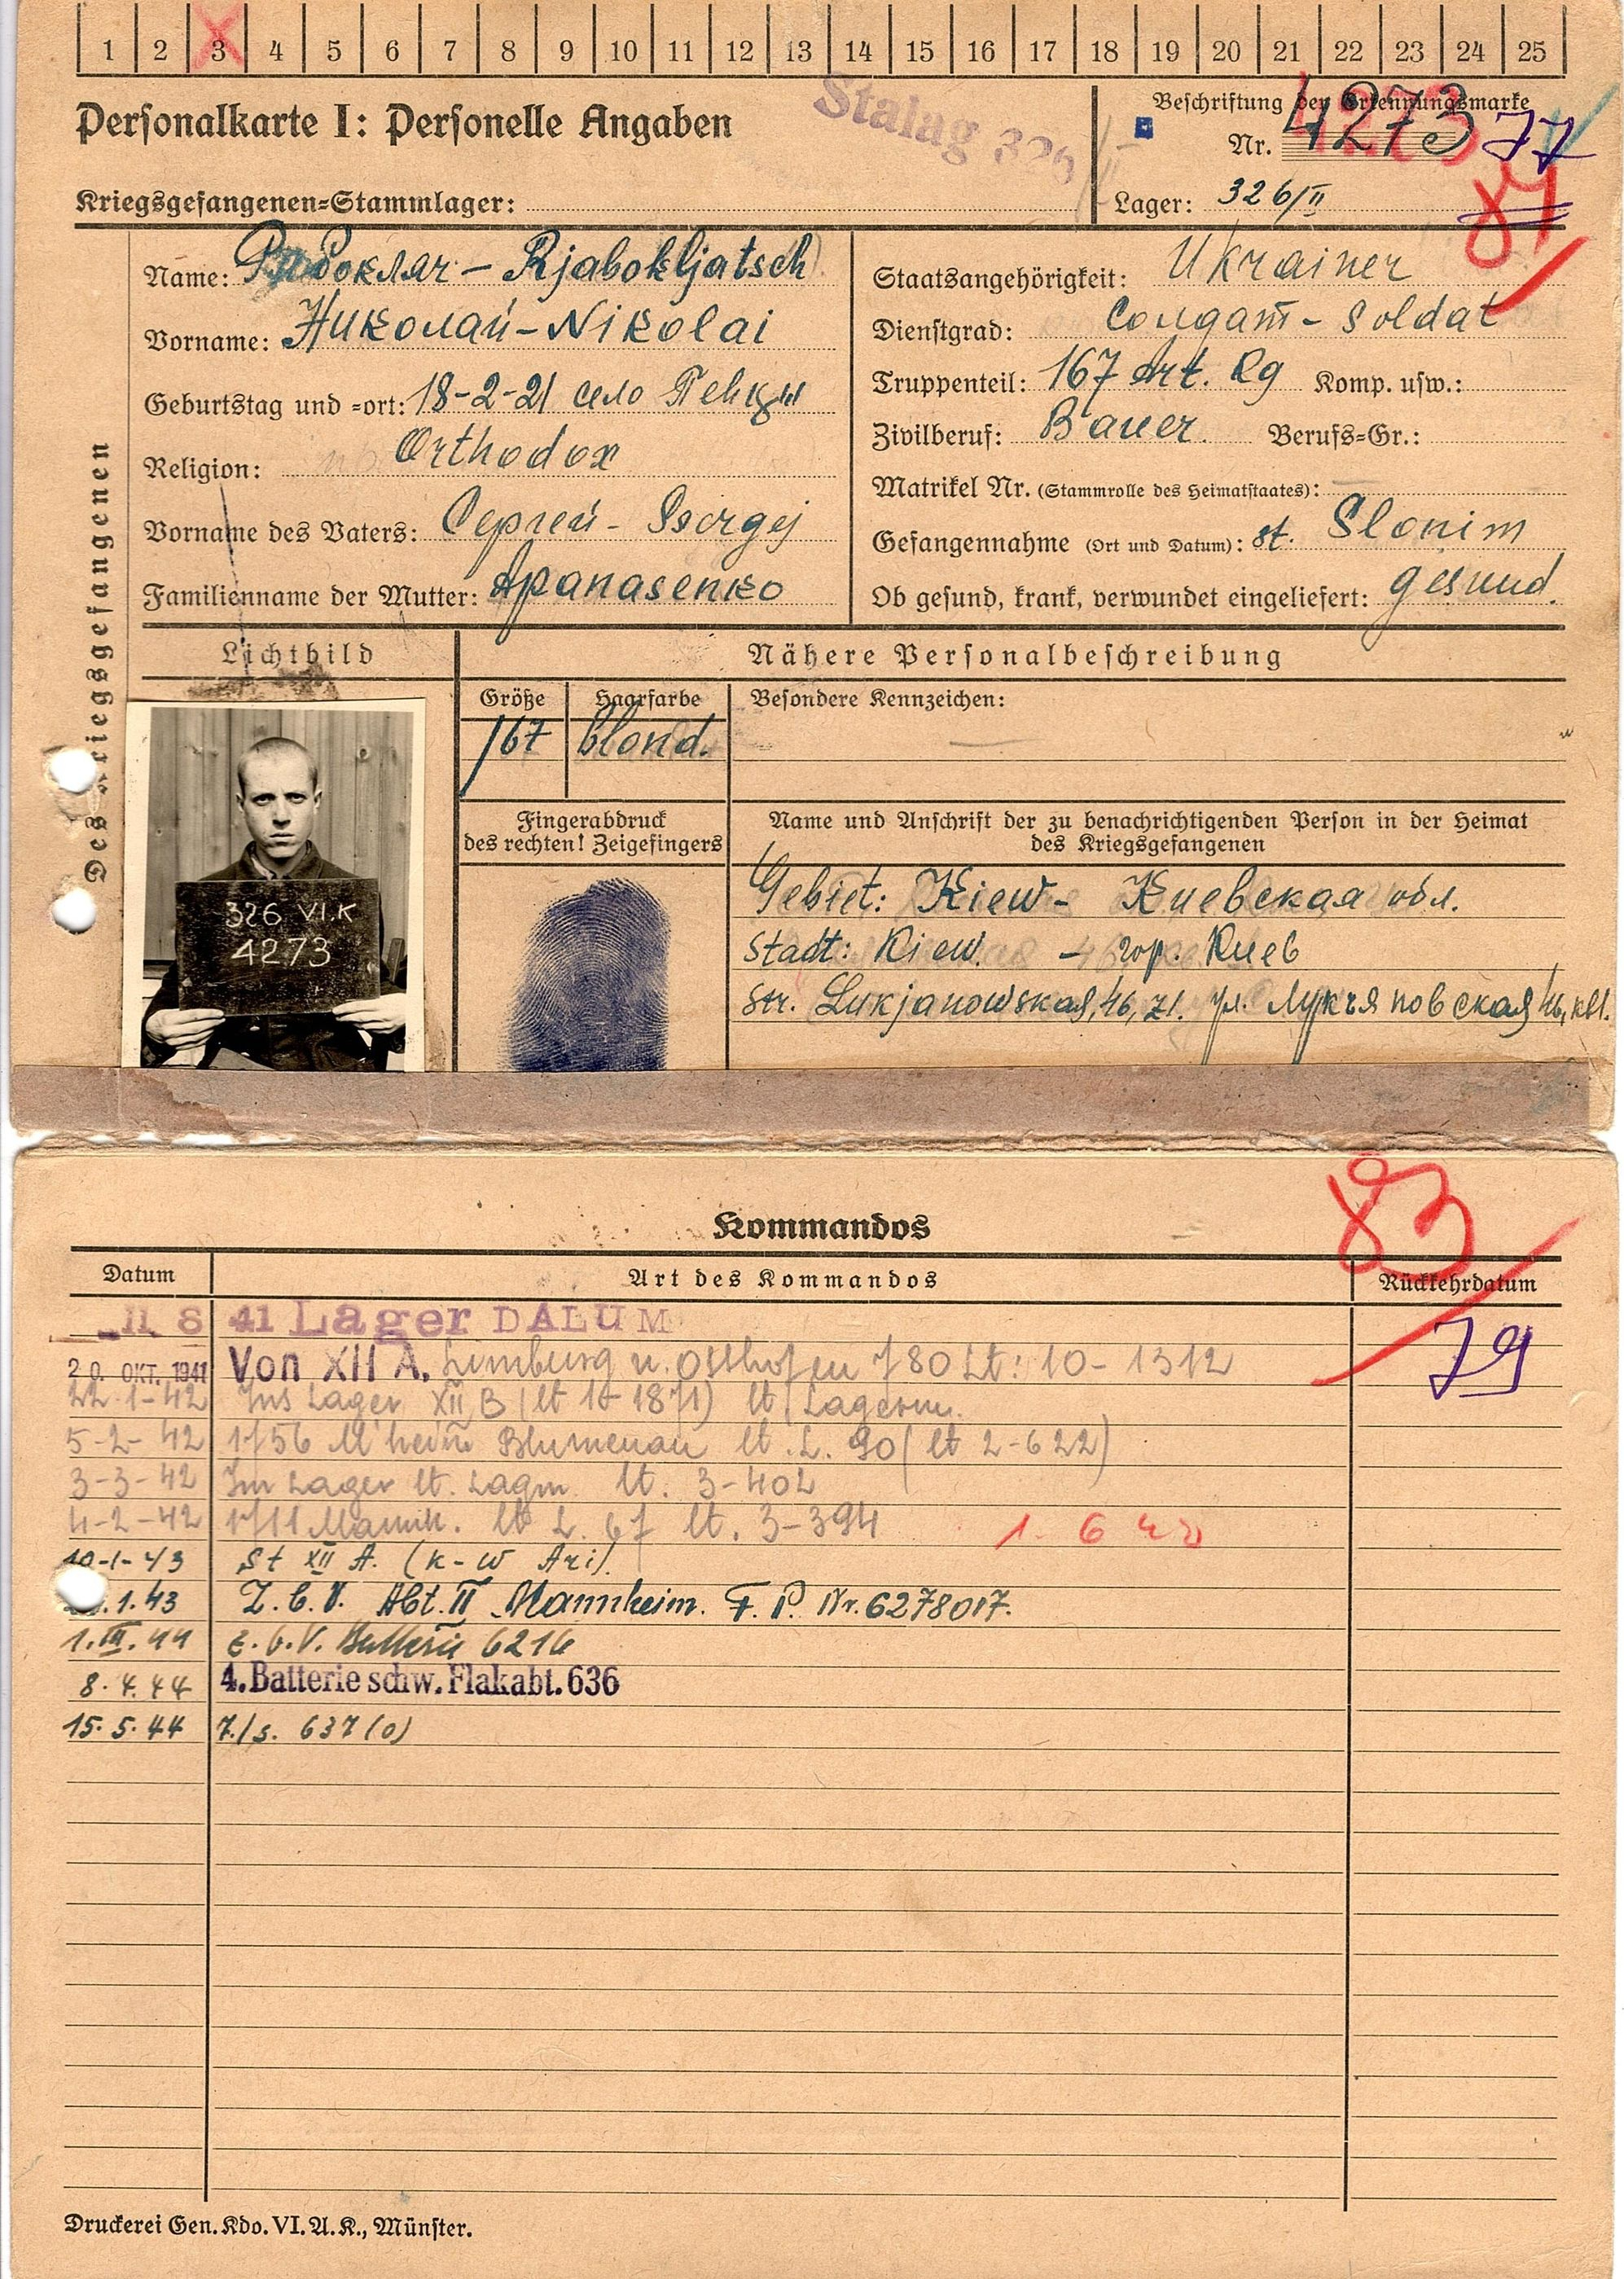 1 2 3 4 5 6 7 8 9 10 11 12 13 14 15 16 17 18 19 20 21 22 23 24 25
Personalkarte I: Personelle Angaben
Stalag 326
Beschriftung der Erkennungsmarke
Nr. 4273 77
Kriegsgefangenen=Stammlager:
Lager: 326/II
Des Kriegsgefangenen
Name: Рябокляч - Rjabokljatsch
Vorname: Николай - Nikolai
Geburtstag und =ort: 18-2-21 село Пенцы
Religion: Orthodox
Vorname des Vaters: Сергей - Ssergej
Familienname der Mutter: Apanasenko
Staatsangehörigkeit: Ukrainer
Dienstgrad: Солдат - Soldat
Truppenteil: 167 Art. Rg Komp. usw.:
Zivilberuf: Bauer. Berufs=Gr.:
Matrikel Nr. (Stammrolle des Heimatstaates):
Gefangennahme (Ort und Datum): st. Slonim
Ob gesund, krank, verwundet eingeliefert: gesund.
Lichtbild
Nähere Personalbeschreibung
Größe
167
Haarfarbe
blond.
Besondere Kennzeichen:
326 VI.K
4273
Fingerabdruck
des rechten! Zeigefingers
Name und Anschrift der zu benachrichtigenden Person in der Heimat
des Kriegsgefangenen
Gebiet: Kiew - Киевская обл.
Stadt: Kiew. - гор. Киев
Str. Lukjanowskaja, 46, ул. Лукъяновская 46, кв1.
83
Kommandos
Datum Art des Kommandos Rückkehrdatum
11 8 41 Lager DALUM
79
20. OKT. 1941 Von XII A. Limburg n. Osthofen 780 Lt: 10-1312
22.1-42 Ins Lager XII B (lt 10-1871) lt Lagerm.
5-2-42 1756 M'heim Blumenau lt. L. 90 (lt 2-622)
3-3-42 Im Lager lt. Lagm. lt. 3-402
4-2-42 1711 Mannh. lt L. 67 lt. 3-394
10-1-43 St XII A. (k-w Ari).
.1.43 Z.b.V. Abt. II Mannheim. F.P. Nr. 6278017.
1.III.44 z.b.V. Batterie 6216
8.4.44 4. Batterie schw. Flakabt. 636
15.5.44 7./s. 637 (o)
Druckerei Gen. Kdo. VI. A. K., Münster.